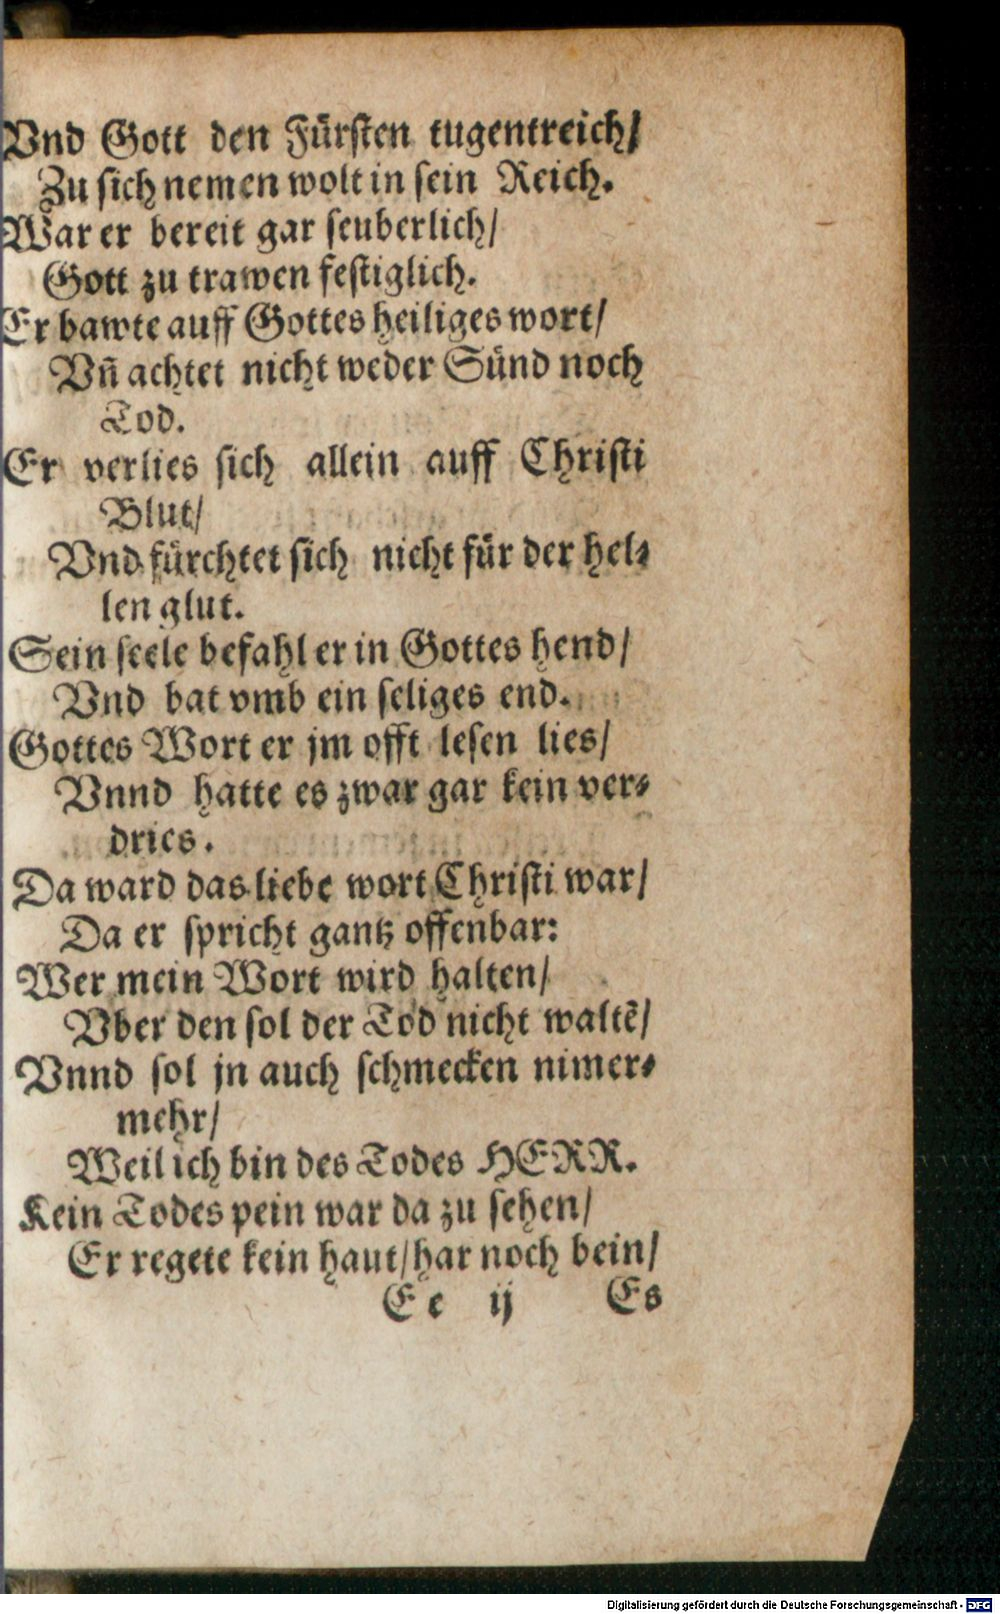 Vnd Gott den Fürsten tugentreich/
Zu sich nemen wolt in sein Reich.
War er bereit gar seuberlich/
Gott zu trawen festiglich.
Er bawte auff Gottes heiliges wort/
Vñ achtet nicht weder Sünd noch
Tod.
Er verlies sich allein auff Christi
Blut/
Vnd fürchtet sich nicht für der hel⸗
len glut.
Sein seele befahl er in Gottes hend/
Vnd bat vmb ein seliges end.
Gottes Wort er jm offt lesen lies/
Vnnd hatte es zwar gar kein ver⸗
dries.
Da ward das liebe wort Christi war/
Da er spricht gantz offenbar:
Wer mein Wort wird halten/
Vber den sol der Tod nicht waltē/
Vnnd sol jn auch schmecken nimer⸗
mehr/
Weil ich bin des Todes HERR.
Kein Todes pein war da zu sehen/
Er regete kein haut/har noch bein/
Ee ij Es
Digitalisierung gefördert durch die Deutsche Forschungsgemeinschaft - DFG